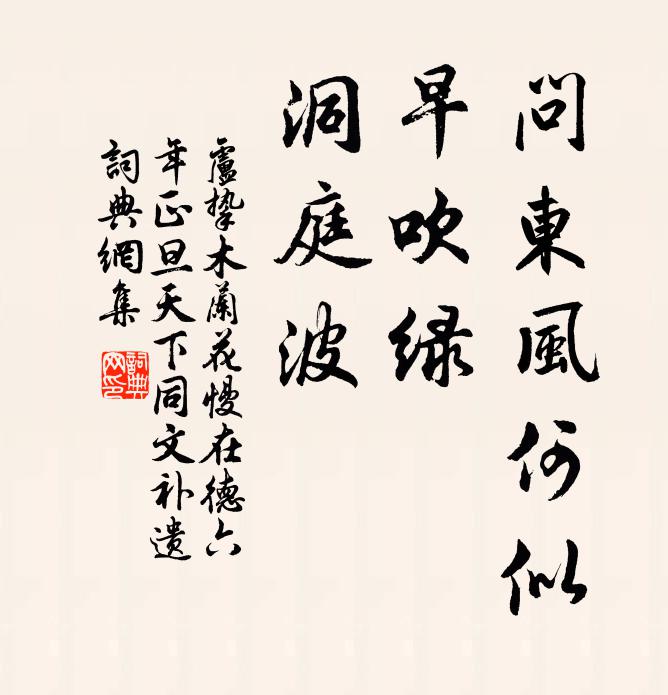 問東風何似
早吹緑
洞庭波
盧摯木蘭花慢在德六
年正旦天下同文补遗
詞典網集
詞典
网印